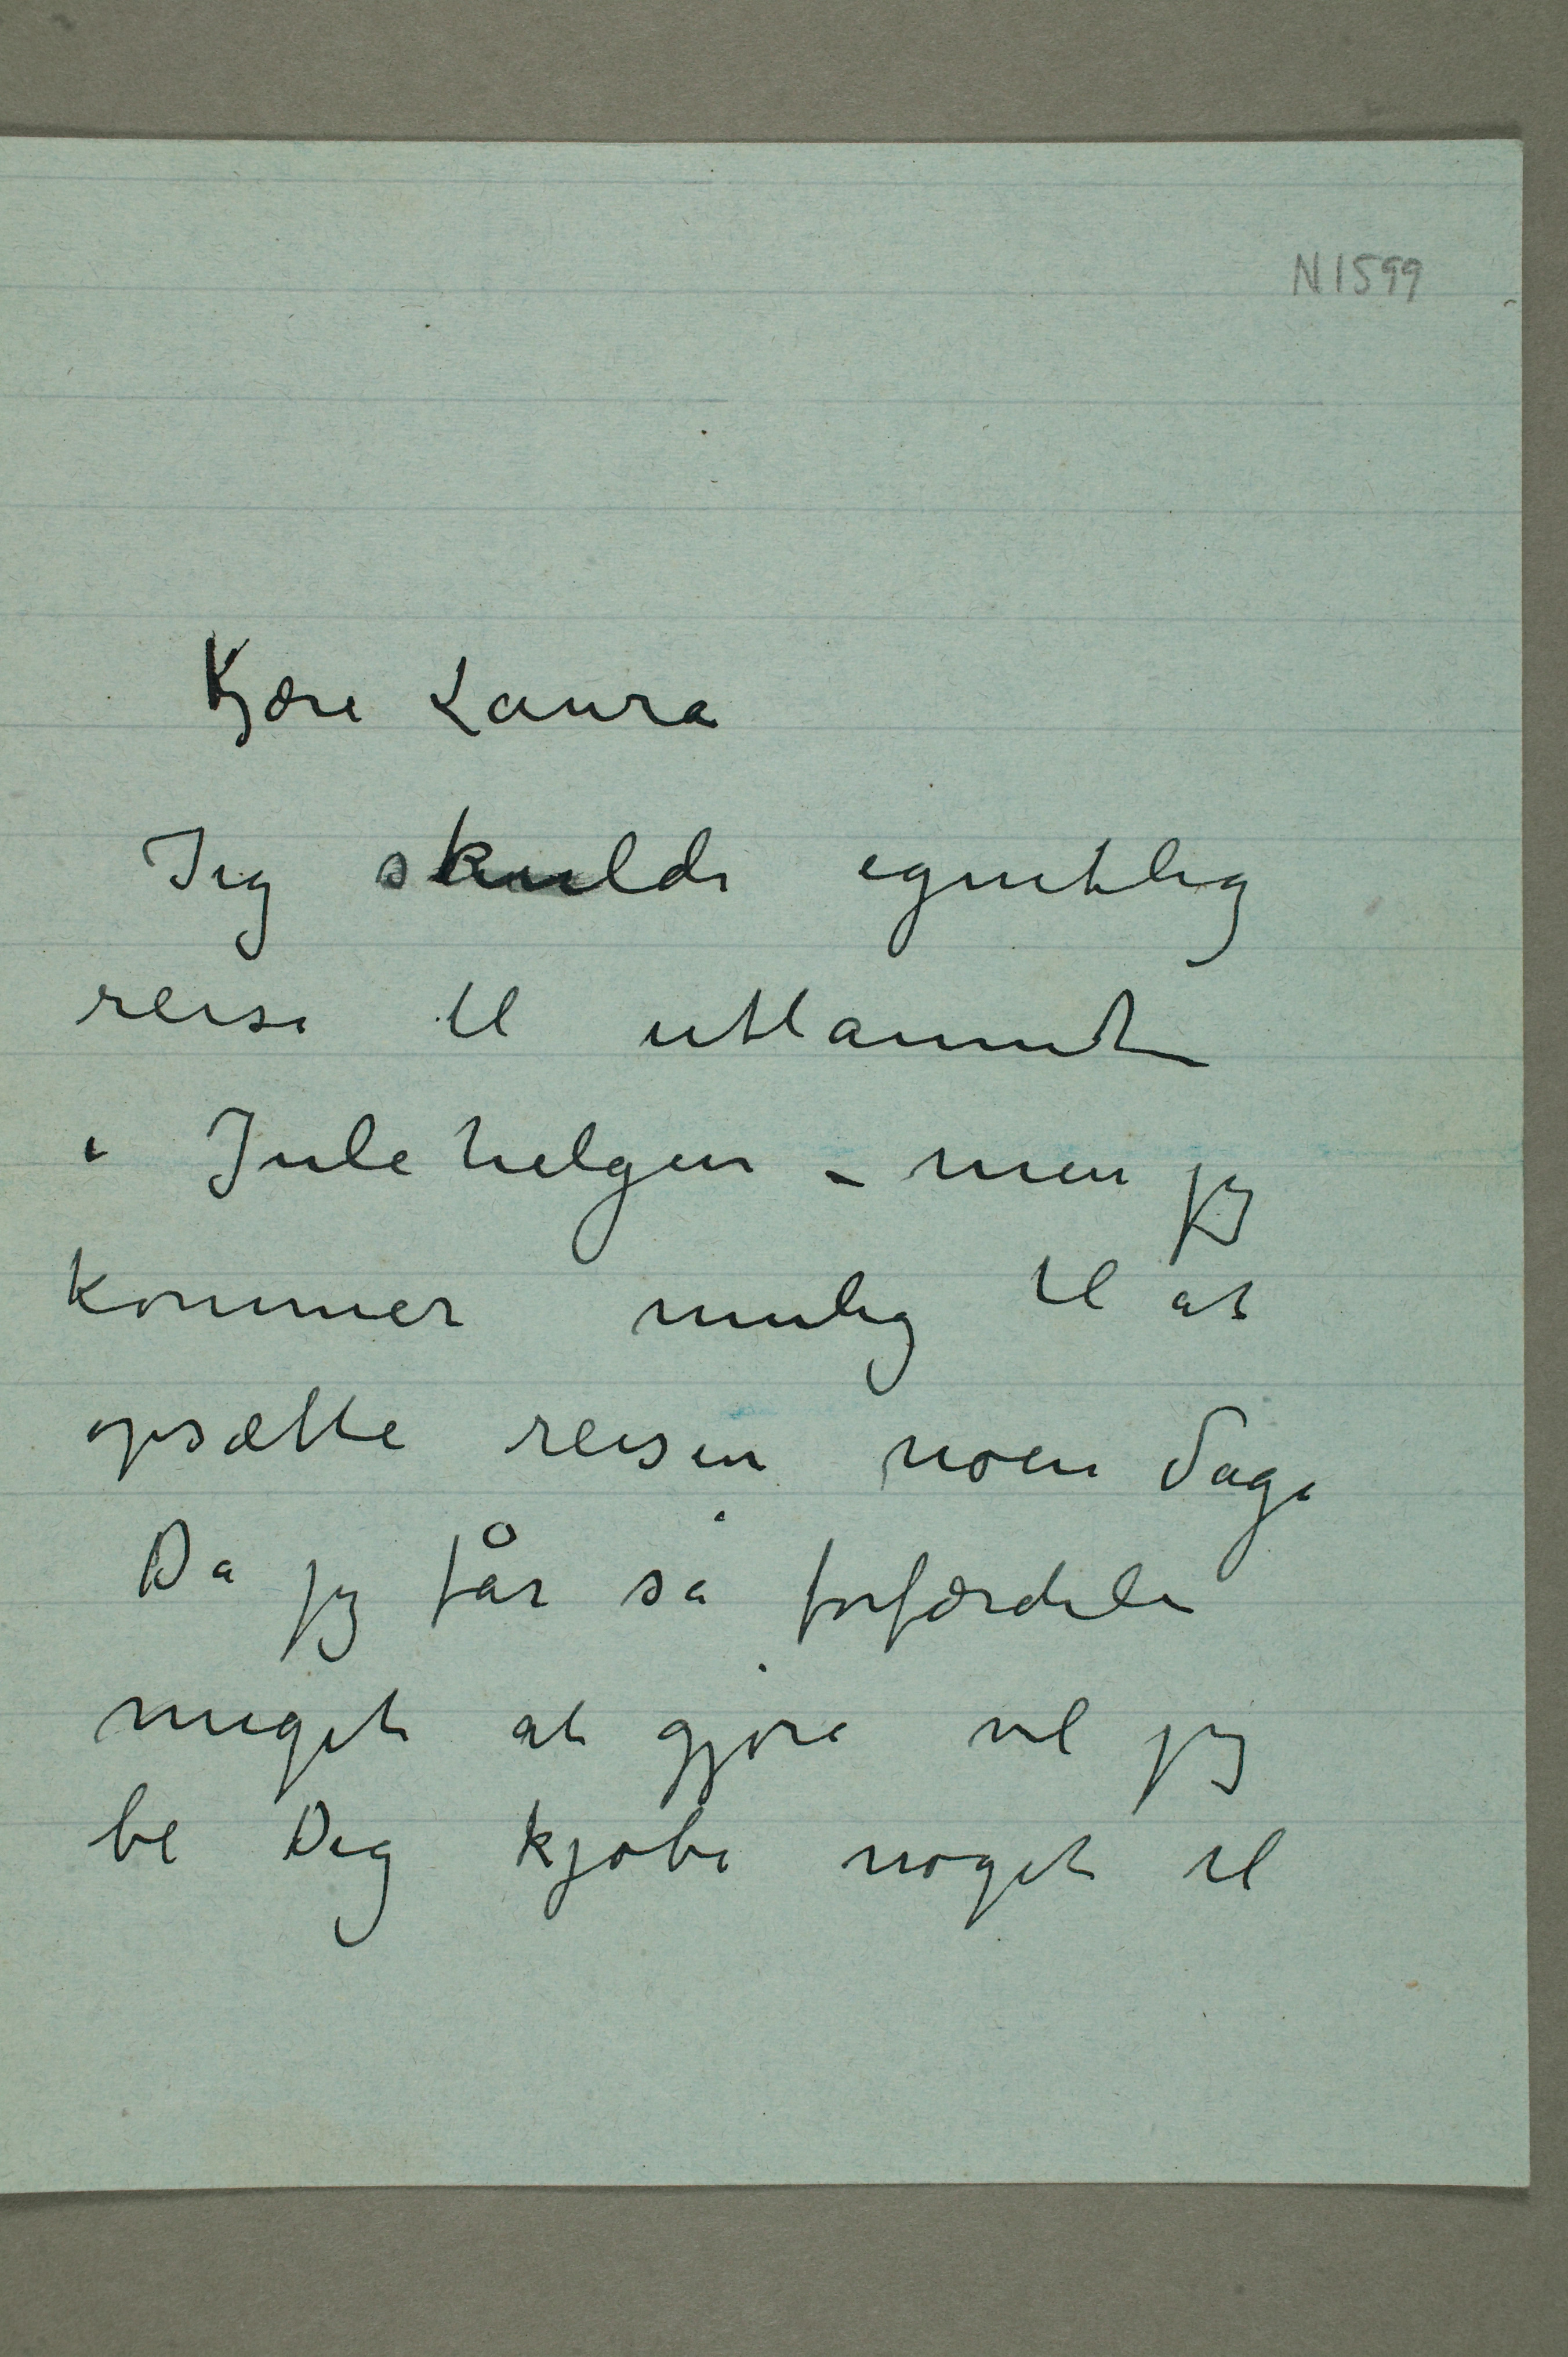 N 1599
Kjære Laura
Jeg skulde egentlig
reise til utlannet
i Julehelgen – men jeg
kommer mulig til at
opsætte reisen noen Dage
Da jeg får så forfærdeli
meget at gjøre vil jeg
be Dig kjøbe noget til